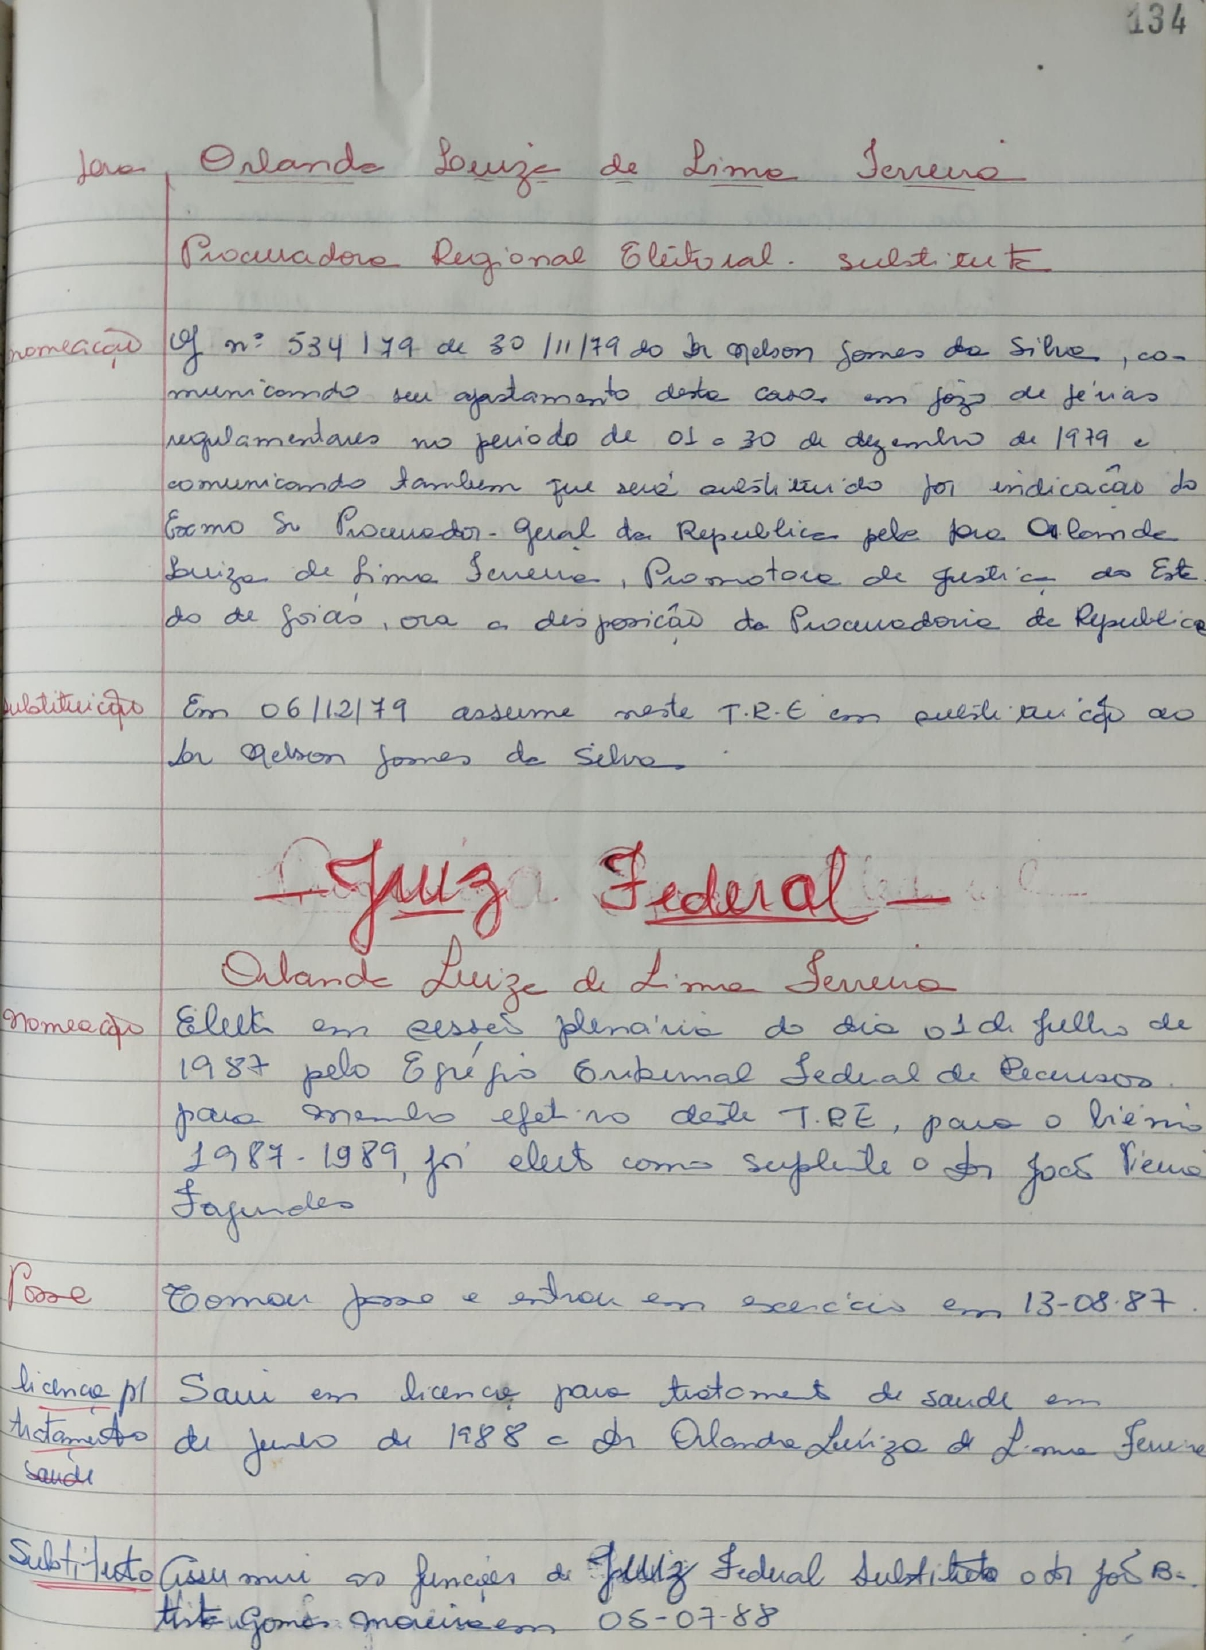 134
Orlanda Luiza de Lima Ferreira
Procuradora Regional Eleitoral. substituta
nomeação Of nº 534/79 de 30/11/79 do Dr Nelson Gomes da Silva, co-
municando seu afastamento desta casa em gôzo de férias
regulamentares no periodo de 01 a 30 de dezembro de 1979 e
comunicando tambem que será substituido por indicação do
Exmo Sr Procurador-Geral da Republica pela Dra Orlanda
Luiza de Lima Ferreira, Promotora de Justiça do Esta
do de Goiás, ora a disposição da Procuradoria da Republica
substituição Em 06/12/79 assume neste T.R.E em substituição ao
Dr Nelson Gomes da Silva
- Juiza Federal -
Orlanda Luiza de Lima Ferreira
nomeação Eleita em sessão plenária do dia 01 de Julho de
1987 pelo Egrégio Tribunal Federal de Recursos
para membro efetivo deste T.RE, para o biênio
1987-1989, foi eleito como suplente o Dr João Vieira
Fagundes
Posse Tomou posse e entrou em exercício em 13-08-87.
licença p/ Saiu em licença para tratamento de saude em
tratamento de junho de 1988 a Dra Orlanda Luiza de Lima Ferreira
saude
Substituto Assumiu as funções de Juiz Federal Substituto o Dr João Ba-
tista Gomes Moreira em 05-07-88